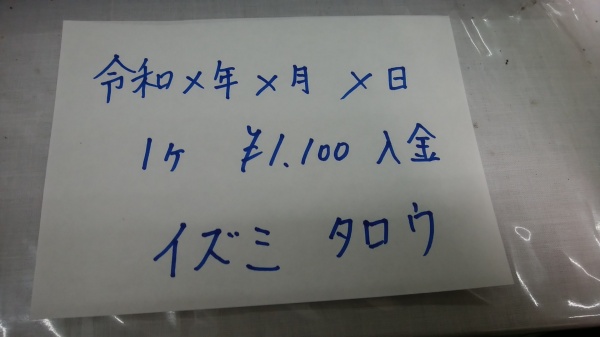 令和×年×月 ×日
1ケ ¥1.100 入金
イズミ タロウ